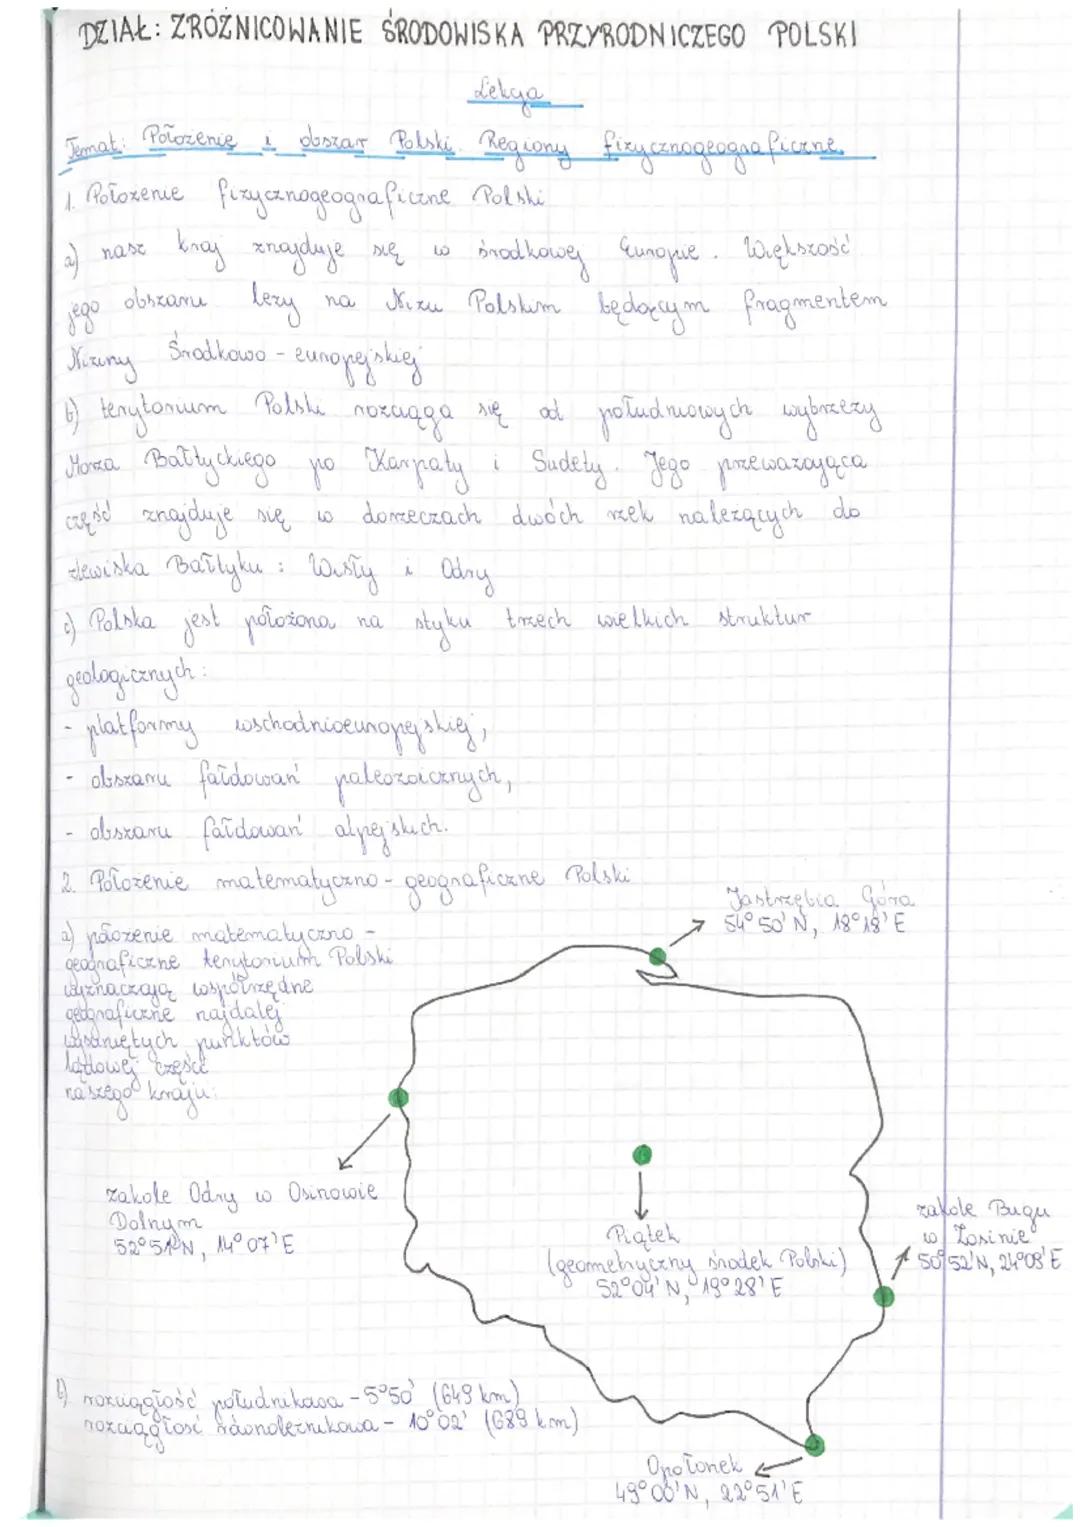 DZIAŁ: ZRÓŻNICOWANIE ŚRODOWISKA PRZYRODNICZEGO POLSKI
Lekcja
Temat: Położenie i obszar Polski. Regiony fizycznogeograficzne.
1. Położenie fizycznogeograficzne Polski
a) nasz kraj znajduje się w środkowej Europie. Większość
jego obszaru leży na Niżu Polskim będącym fragmentem
Niziny Środkowo-europejskiej
b) terytorium Polski rozciąga się od południowych wybrzeży
Morza Bałtyckiego po Karpaty i Sudety. Jego przeważająca
część znajduje się w dorzeczach dwóch rzek należących do
zlewiska Bałtyku: Wisły i Odry
c) Polska jest położona na styku trzech wielkich struktur
geologicznych:
- platformy wschodnioeuropejskiej,
- obszaru fałdowań paleozoicznych,
- obszaru fałdowań alpejskich.
2. Położenie matematyczno-geograficzne Polski
a) położenie matematyczno-
geograficzne terytorium Polski
wyznaczają współrzędne
geograficzne najdalej
wysuniętych punktów
lądowej części
naszego kraju:
Jastrzębia Góra
54°50'N, 18°18'E
zakole Odry w Osinowie
Dolnym
52°51'N, 14°07'E
Piątek
(geometryczny środek Polski)
52°04'N, 19°28'E
zakole Bugu
w Zosinie
50°52'N, 24°09'E
b) rozciągłość południkowa - 5°50' (649 km)
rozciągłość równoleżnikowa - 10°02' (689 km)
Opołonek
49°00'N, 22°51'E